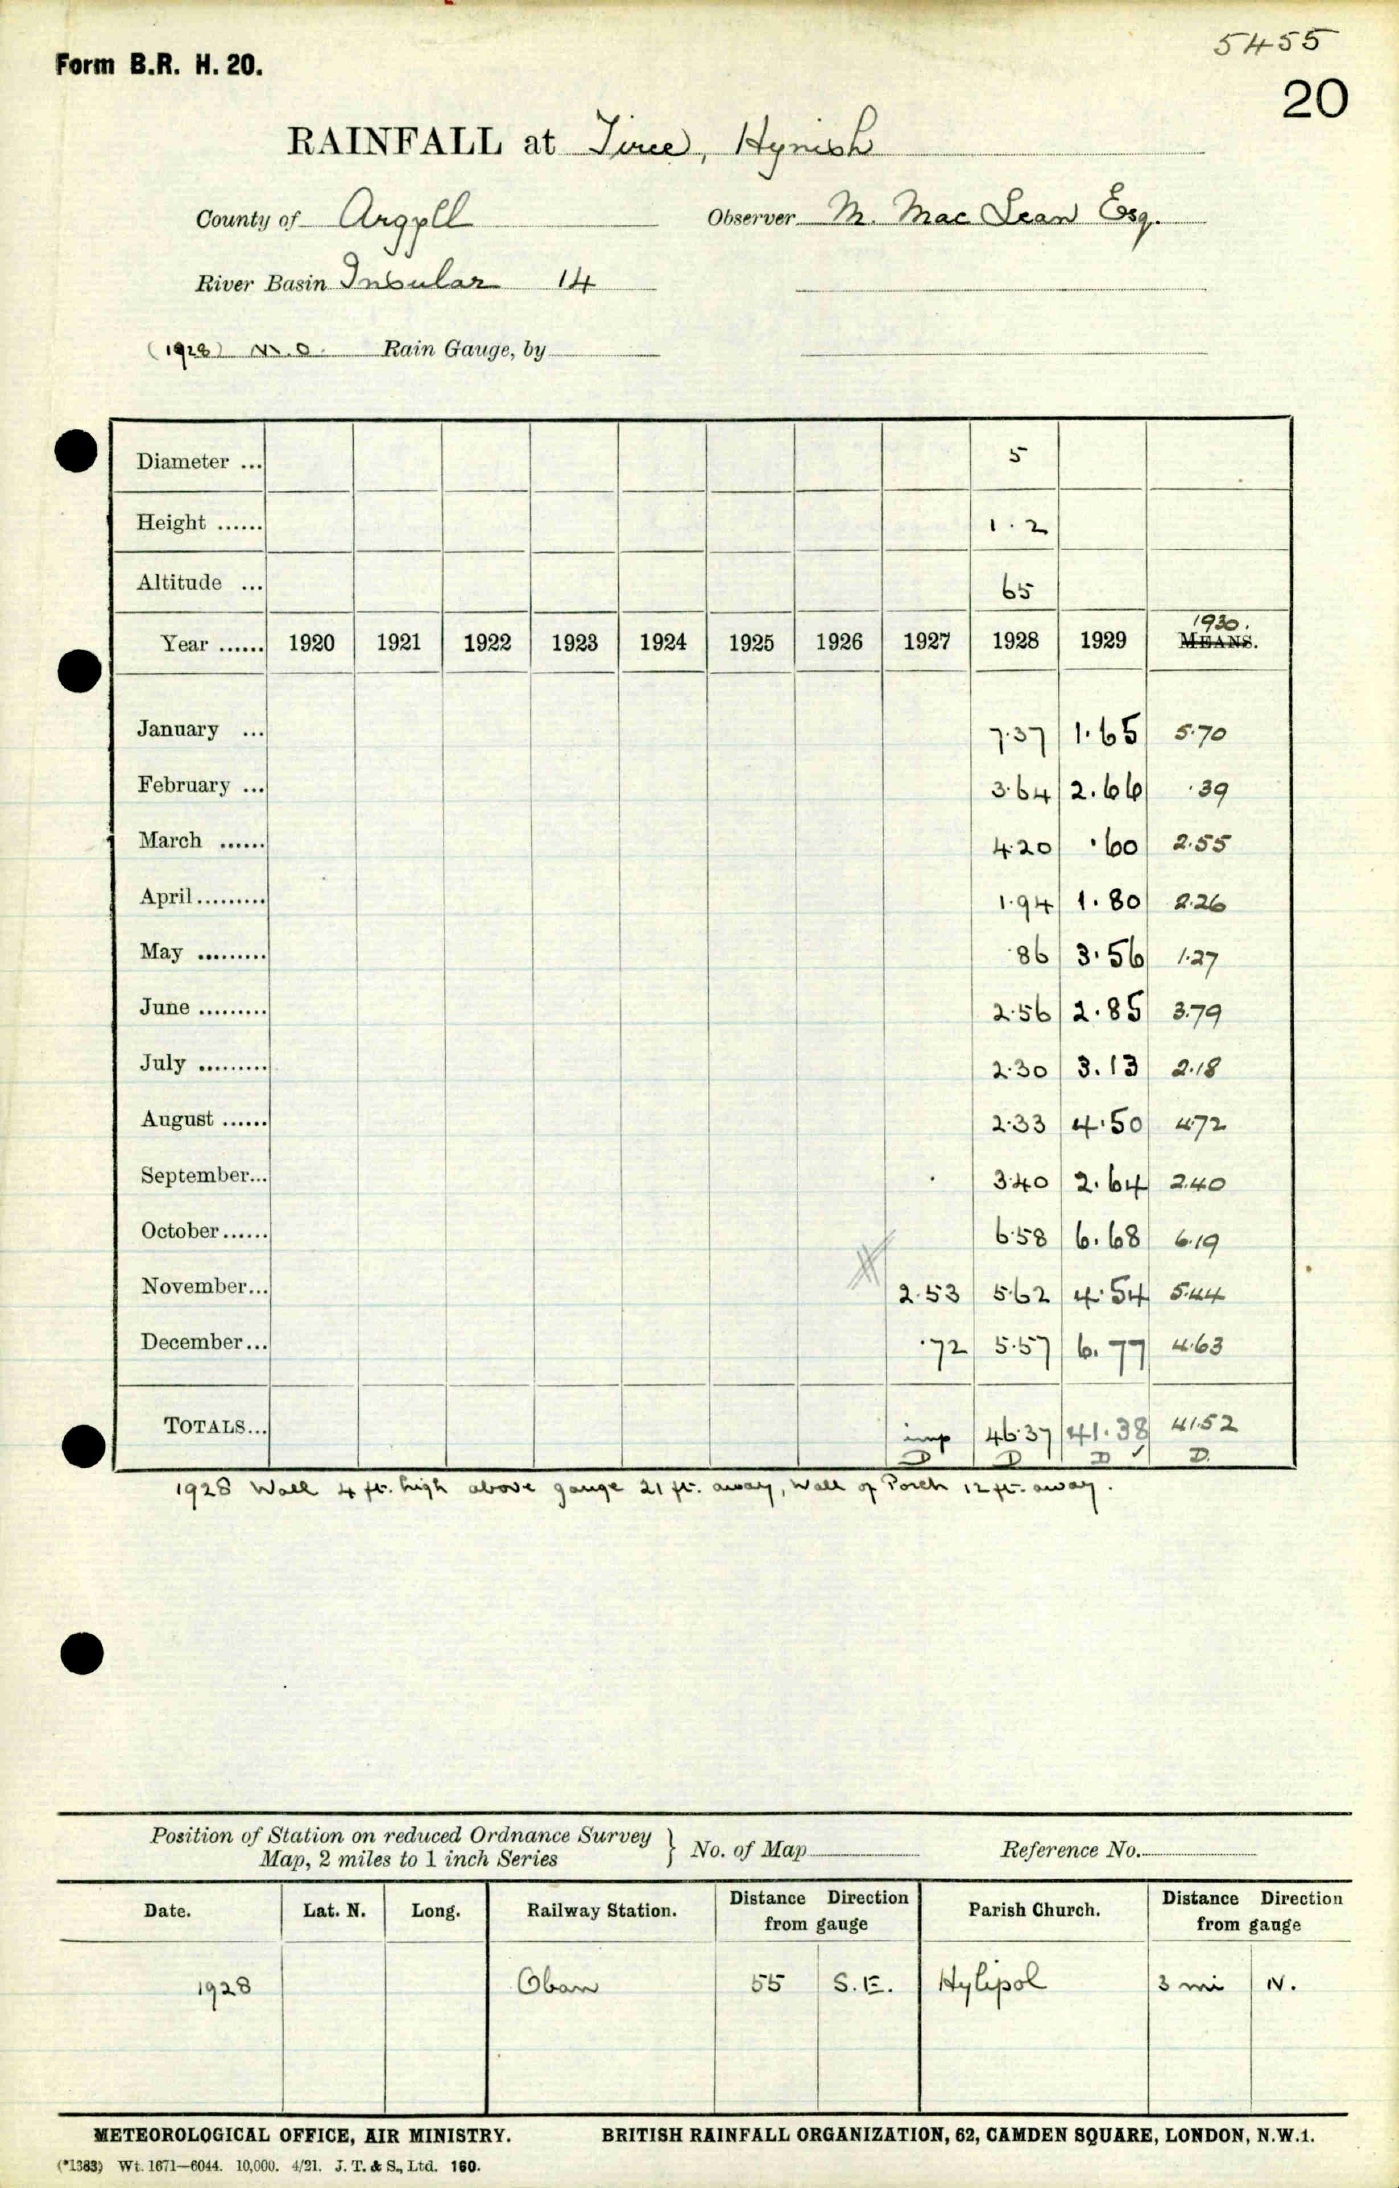 5455
Form B.R. H. 20.
20
RAINFALL at Tiree, Hynish
County of Argyll Observer M. Mac Lean Esq.
River Basin Insular 14
(1928) M.O. Rain Gauge, by
Diameter ... 5
Height ...... 1.2
Altitude ... 65
1930.
Year ...... 1920 1921 1922 1923 1924 1925 1926 1927 1928 1929 MEANS.
January ... 7.37 1.65 5.70
February ... 3.64 2.66 .39
March ...... 4.20 .60 2.55
April......... 1.94 1.80 2.26
May ......... .86 3.56 1.27
June ......... 2.56 2.85 3.79
July ......... 2.30 3.13 2.18
August ...... 2.33 4.50 4.72
September... 3.40 2.64 2.40
October...... 6.58 6.68 6.19
November... 2.53 5.62 4.54 5.44
December... .72 5.57 6.77 4.63
TOTALS... imp 46.37 41.38 41.52
D D D ✓ D.
1928 Wall 4 ft. high above gauge 21 ft. away, Wall of Porch 12 ft. away.
Position of Station on reduced Ordnance Survey
Map, 2 miles to 1 inch Series } No. of Map Reference No.
Date. Lat. N. Long. Railway Station. Distance Direction from gauge Parish Church. Distance Direction from gauge
1928 Oban 55 S.E. Hylipol 3 mi N.
METEOROLOGICAL OFFICE, AIR MINISTRY. BRITISH RAINFALL ORGANIZATION, 62, CAMDEN SQUARE, LONDON, N.W.1.
(*1383) Wt. 1671—6044. 10,000. 4/21. J. T. & S., Ltd. 160.